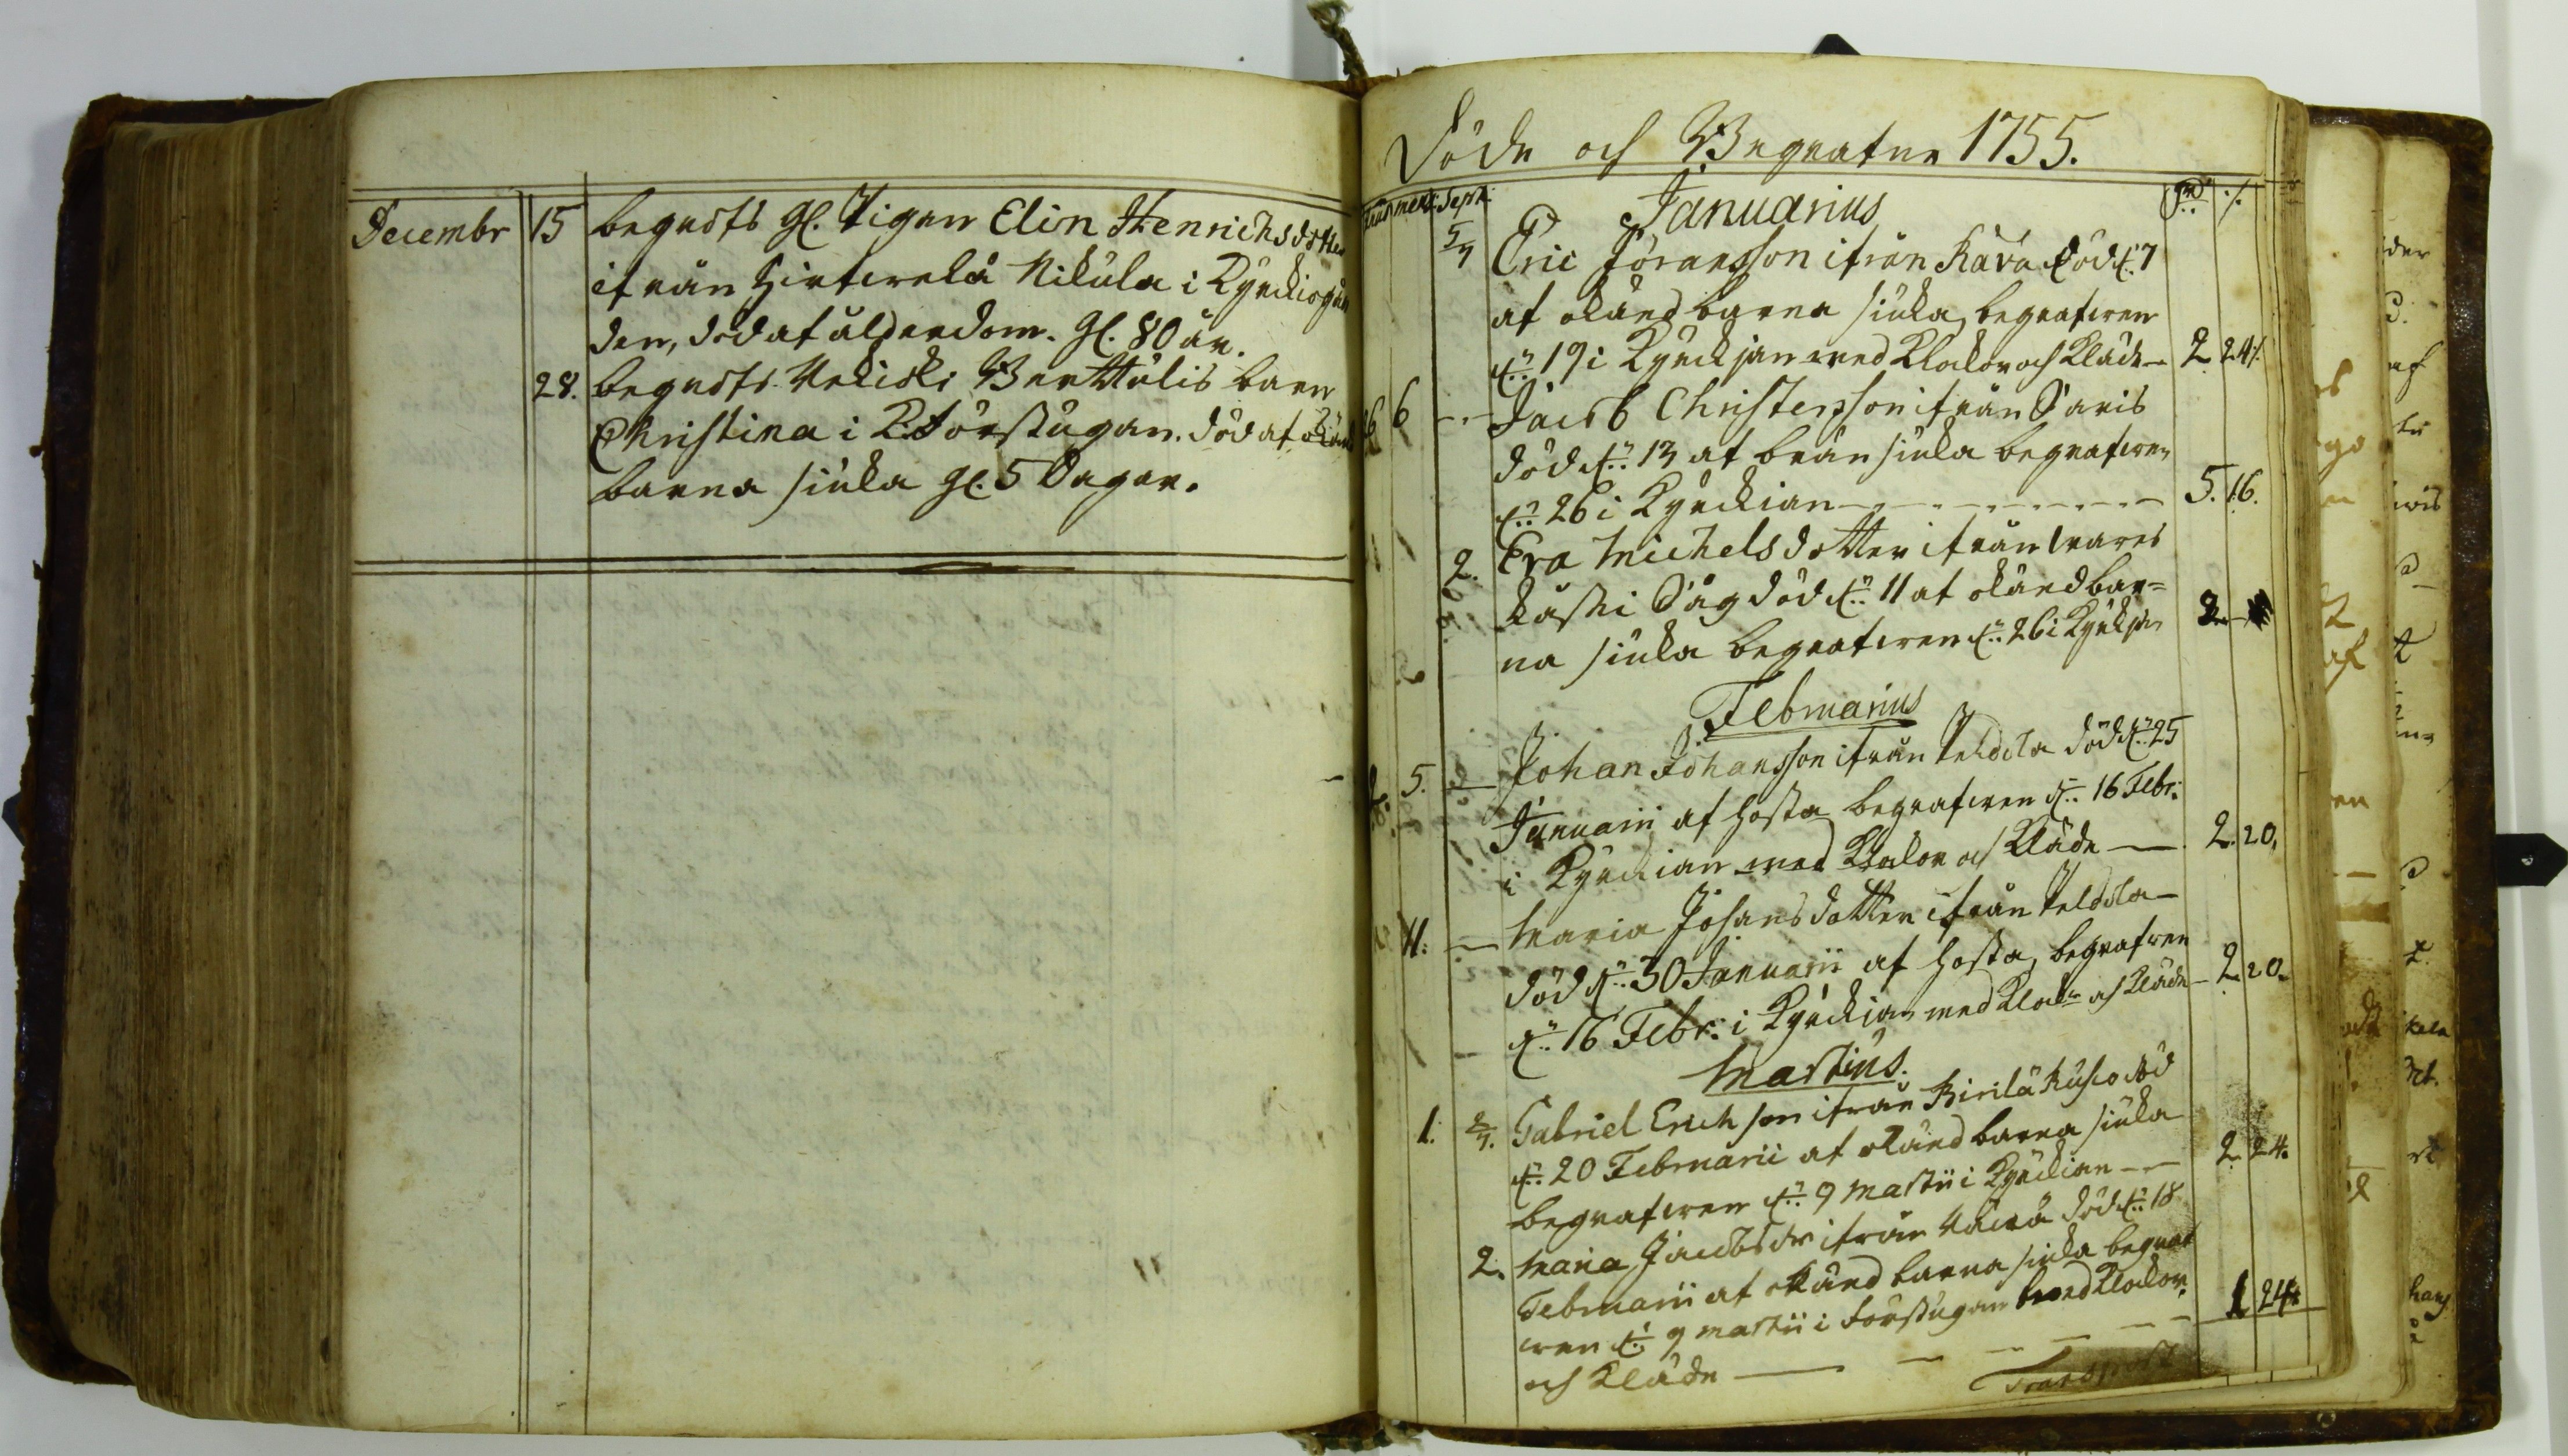 Decembr 15 begrofs gl. Pigan Elin Henrichsdotter
ifrån Hirfwelä Nikula i Kyrkiogår
den, död af ålderdom. Gl. 80 år.
28. begrofs Bertulis barn
Christina i K. Förstugan. död af okänd
barna siuka gl. 5 Dagar.
Döde och Begrafne 1755.
Januarius
5/7 Eric Joransson ifrån Kära död d. 7
af okänd barna siuka, begrafwen
d. 19 i Kyrckjan med Klokor och Kläde 2 24
6 Jacob Christersson ifrån Saris
död d. 13 af brän siuka begrafwen
d. 26 i Kyrckian 5. 16.
2. Eva Michelsdotter ifrån
Såg död d. 11 af okänd bar=
na siuka begrafwen d. 26 i Kyrkjan 2
Februarius
5. Johan Johansson ifrån Peldola död d. 25
Januarii af hosta begrafwen d. 16 Febr:
i Kyrckian med Klokor och Kläde 2. 20.
11. Maria Johansdotter ifrån Peldola
död d. 30 Januarii af hosta, begrafwen
d. 16 Febr: i Kyrckian med Klokor och Kläde 2. 20.
Martius.
1. Gabriel Erichson ifrån Kirilä Rusco död
d. 20 Februarii af okänd barna siuka
begrafwen d. 9 Martii i Kyrckian 2. 24.
2. Maria Jacobsdr ifrån död d. 18
Februarii af okänd barna siuka begraf
wen d. 9 Martii i förstugan med Klockor
och Kläde 1 24
Transport